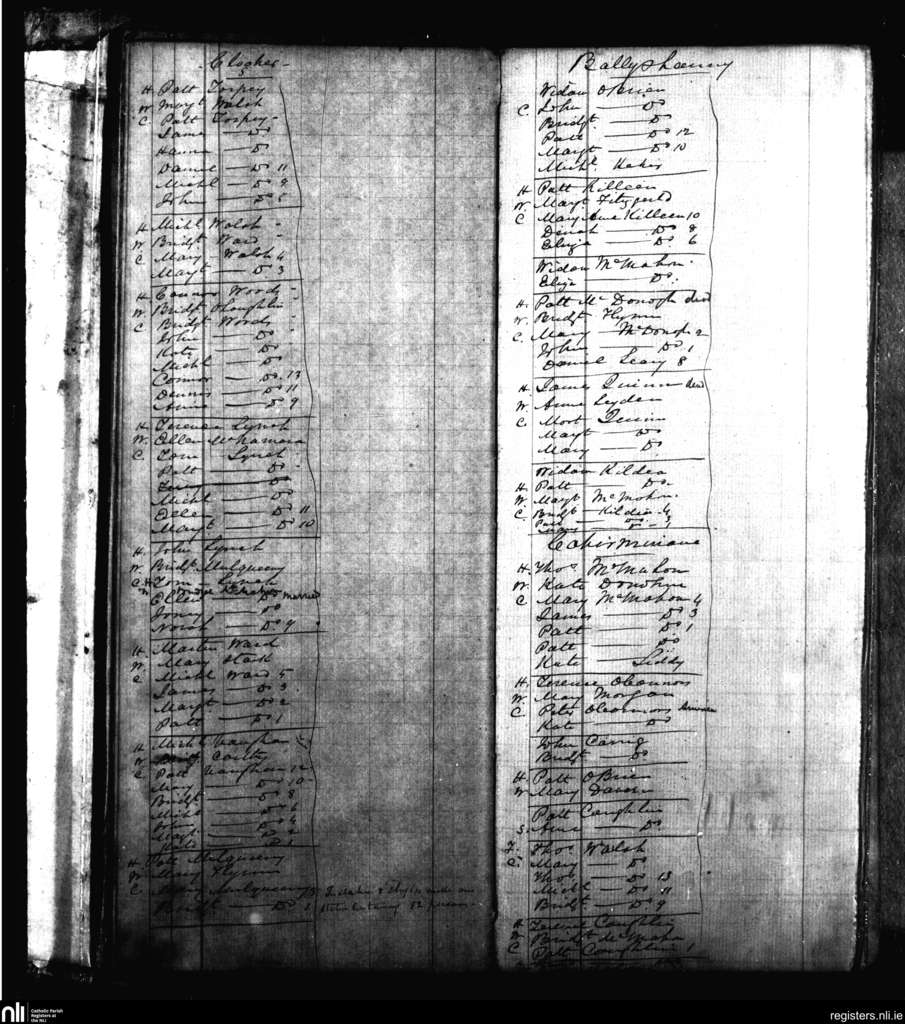 Clogher
H Patt Torpey
W Mary^t Walsh
C Patt Torpey
James — Do
Hanna — Do
Daniel — Do 11
Michl — Do 8
John — Do
H Michl Walsh
W Bridt Ward
C Mary Walsh 4
Mary^t — Do 3
H Connor Woods
W Bridt OLoughlin
C Bridt Woods
John — Do
Kate — Do
Michl — Do
Connor — Do 13
Dennis — Do 11
Anne — Do 9
H Terence Lynch
W Ellen McNamara
C Tom Lynch
Patt — Do
Terry — Do
Michl — Do
Ellen — Do 11
Mary^t — Do 10
H John Lynch
W Bridt Mulqueeny
C H Tom — Lynch
Ellen married
— Do
Norah — Do 9
H Martin Ward
W Mary Stack
C Michl Ward 5
James — Do 3
Mary^t — Do 2
Patt — Do 1
H Michl Vaughan
W Carthy
C Patt Vaughan 12
Mary — Do 10
Bridt — Do 8
Michl — Do 6
— Do 4
Mary^t — Do 2
Kate — Do
H Patt Mulqueeny
W Mary Flynn
C Mary Mulqueeny
— Do 52 persons
Ballyshanny
Widow OBrien
C John — Do
Bridt — Do
Patt — Do 12
Mary^t — Do 10
Michl
H Patt Killeen
W Mary^t Fitzgerald
C Mary Anne Killeen 10
Dinah — Do 8
Eliza — Do 6
Widow McMahon
Eliza — Do
H Patt Mc Donogh dead
W Bridt Flynn
C Mary McDonogh 2
John — Do 1
Daniel Leary 8
H James Quinn dead
W Anne Leyden
C Mort Quinn
Mary^t — Do
Mary — Do
Widow Kildea
H Patt — Do
W Mary^t McMahon
C Bridt Kildea 4
Patt — Do 3
Cahirminane
H Thos McMahon
W Kate Donohue
C Mary McMahon 4
James — Do 3
Patt — Do 1
Patt — Do
Kate — Liddy
H Terence OConnors
W Mary Morgan
C Peter OConnors
Kate — Do
John Carrig
Bridt — Do
H Patt OBrien
W Mary Davoren
Patt Coughlin
S Anne — Do
F. Thos Walsh
C Mary — Do
Thos — Do 13
Michl — Do 11
Bridt — Do 9
H Coughlin
W Bridt McMahon
C Patt Coughlin 1
nli
Catholic Parish
Registers at
the NLI
registers.nli.ie